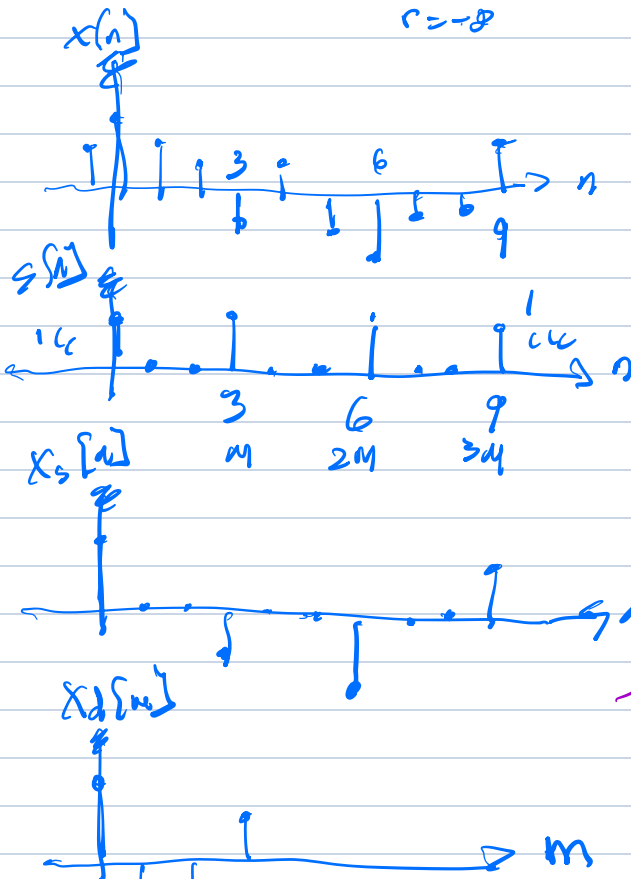 r = -∞
x[n]
3 6
n
9
s[n]
1
3 6 9
M 2M 3M
xs[n]
xd[m]
m